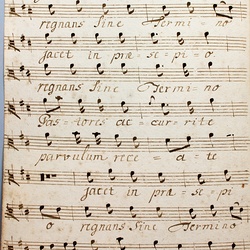 regnans sine Termino
jacet in præ=se=pi=o
regnans sine Ter=mi=no
Pas=tores ac=cur=rite
parvulum rece=a=te
jacet in præ=se=pi
o regnans sine Termino